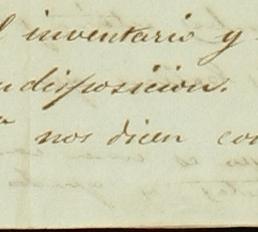 l inventario y
disposicion.
nos dicen co